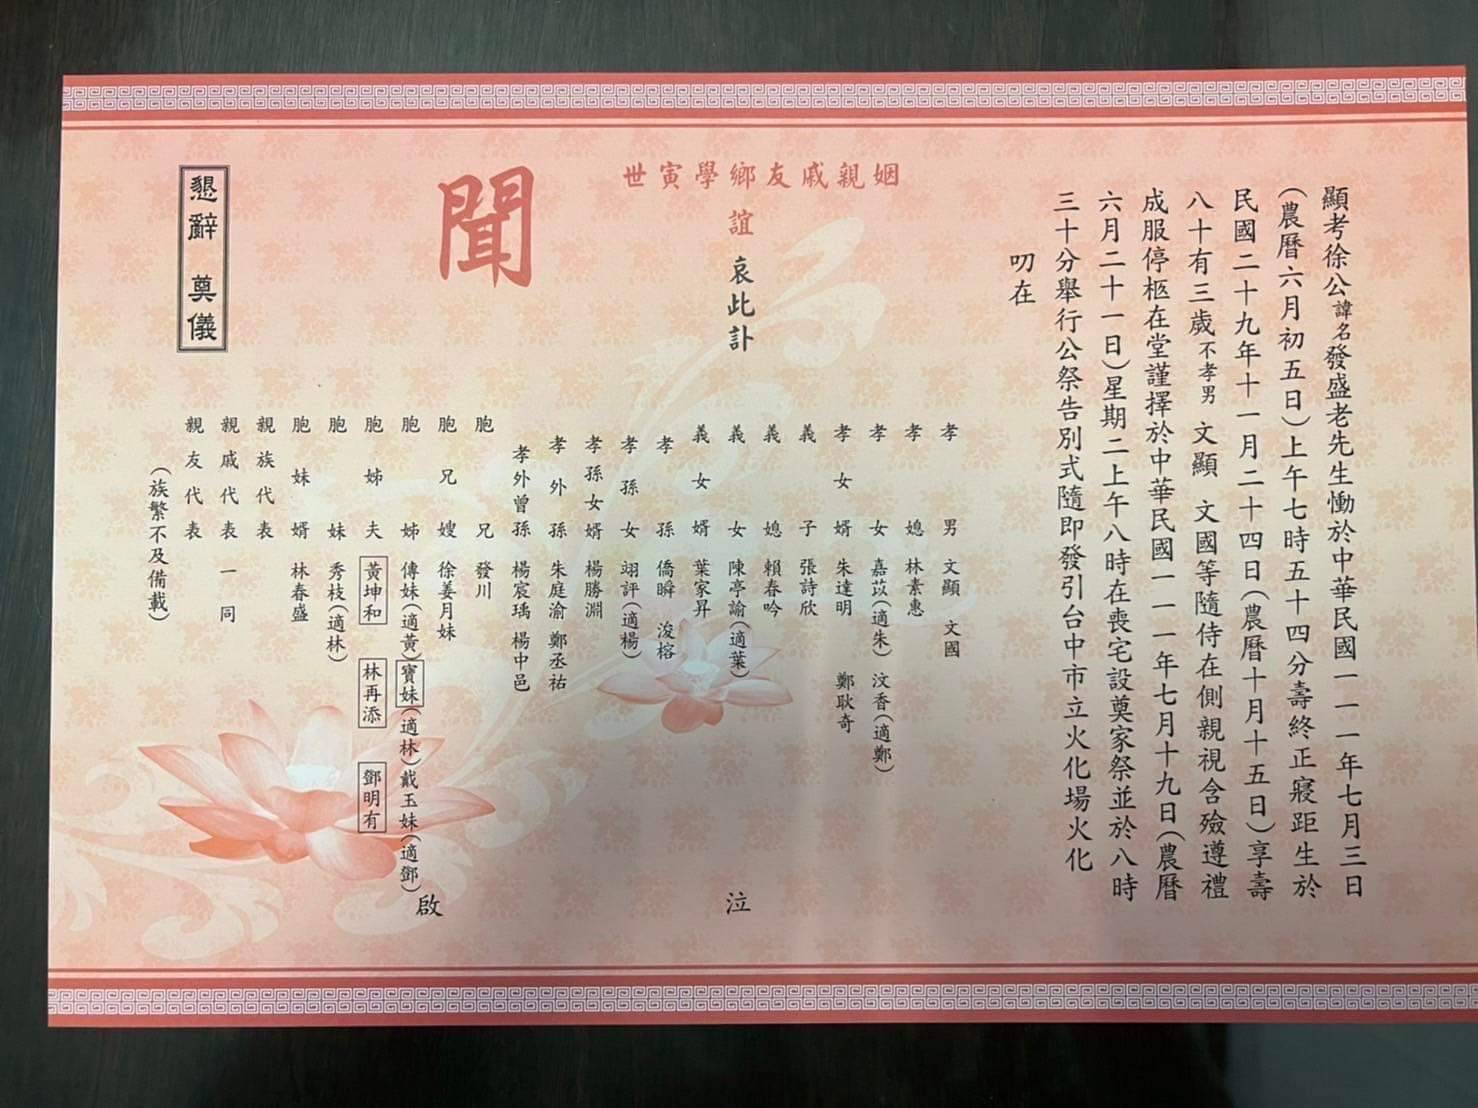 顯考徐公諱名發盛老先生慟於中華民國一一一年七月三日
(農曆六月初五日)上午七時五十四分壽終正寢距生於
民國二十九年十一月二十四日(農曆十月十五日)享壽
八十有三歲不孝男 文顯 文國等隨侍在側親視含殮遵禮
成服停柩在堂謹擇於中華民國一一一年七月十九日(農曆
六月二十一日)星期二上午八時在喪宅設奠家祭並於八時
三十分舉行公祭告別式隨即發引台中市立火化場火化
叨在
姻親戚友鄉學寅世
誼 哀此訃
聞
孝男 文顯 文國
孝媳 林素惠
孝女 嘉苡(適朱) 汶香(適鄭)
孝女婿 朱達明 鄭耿奇
義子 張詩欣
義媳 賴春吟
義女 陳亭諭(適葉)
義女婿 葉家昇
孝孫 僑瞬 浚榕
孝孫女 翊評(適楊)
孝孫女婿 楊勝淵
孝外孫 朱庭渝 鄭丞祐
孝外曾孫 楊宸瑀 楊中邑
泣
胞兄 發川
胞兄嫂 徐姜月妹
胞姊 傳妹(適黃) 寶妹(適林) 戴玉妹(適鄧)
胞姊夫 黃坤和 林再添 鄧明有
胞妹 秀枝(適林)
胞妹婿 林春盛
親族代表
親戚代表 一同
親友代表
(族繁不及備載)
啟
懇辭 奠儀